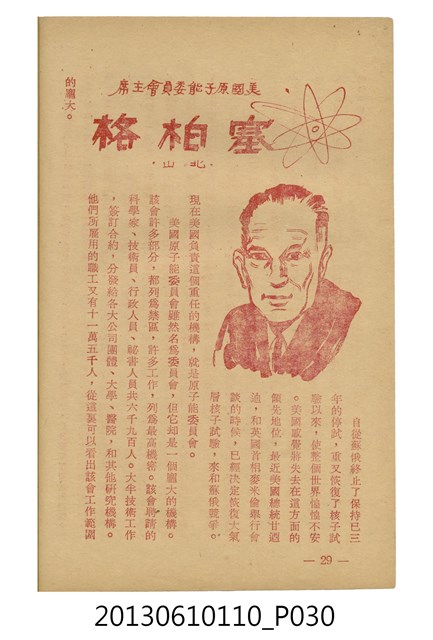 美國原子能委員會主席
塞柏格
·北山·
自從蘇俄終止了保持已三
年的停試，重又恢復了核子試
驗以來，使整個世界惴惴不安
。美國感覺將失去在這方面的
領先地位，最近美國總統甘迺
迪，和英國首相麥米倫舉行會
談的時候，已經決定恢復大氣
層核子試驗，來和蘇俄競爭。
現在美國負責這個重任的機構，就是原子能委員會。
美國原子能委員會雖然名爲委員會，但它却是一個龐大的機構。
該會許多部分，都列爲禁區，許多工作，列爲最高機密。該會聘請的
科學家、技術員、行政人員、秘書人員共六千九百人。大半技術工作
，簽訂合約，分發給各大公司團體、大學、醫院，和其他研究機構。
他們所雇用的職工又有十一萬五千人，從這裏可以看出該會工作範圍
的龐大。
— 29 —
20130610110_P030